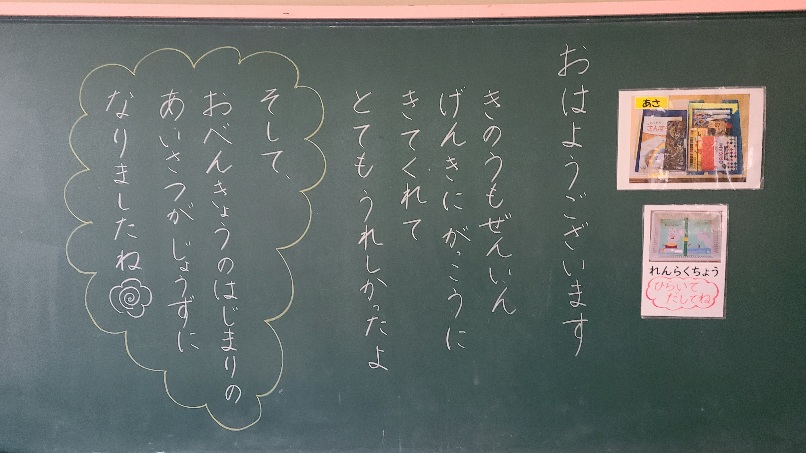 おはようございます
きのうもぜんいん
げんきにがっこうに
きてくれて
とてもうれしかったよ
そして、
おべんきょうのはじまりの
あいさつがじょうずに
なりましたね
あさ
れんらくちょう
ひらいて
だしてね